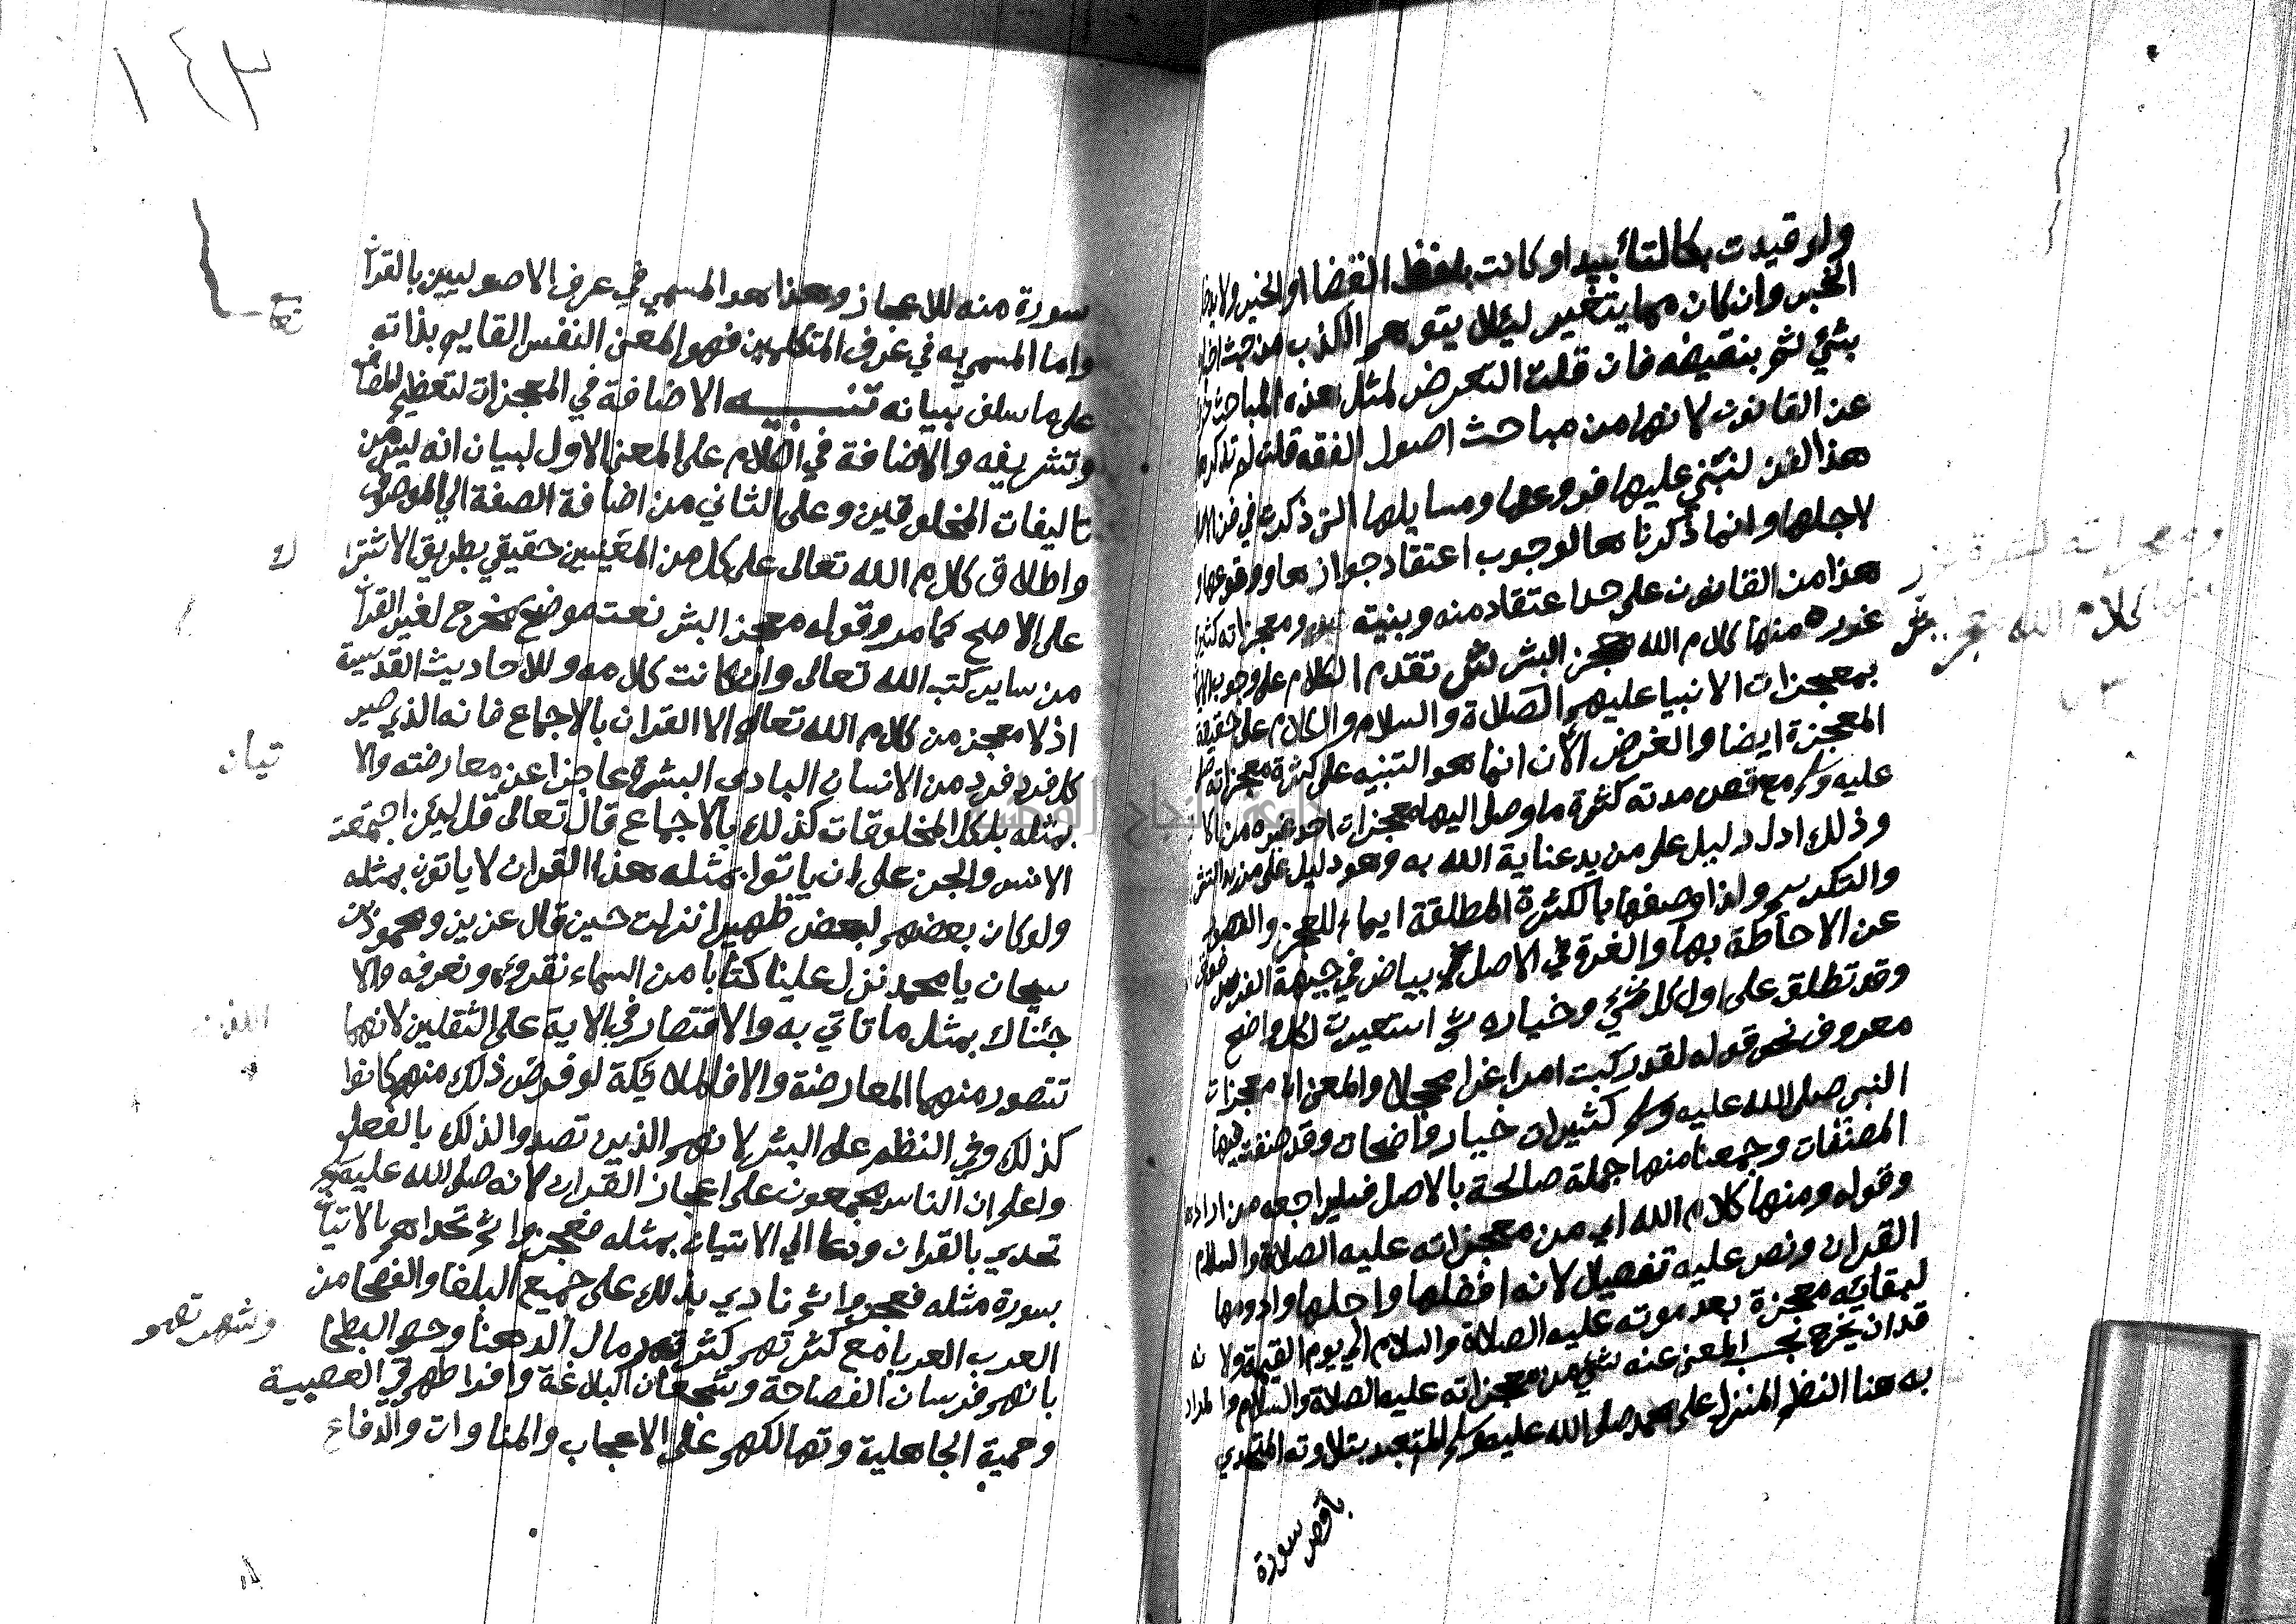 ولو قيدت بكالتأبيد او كانت بلفظ القضا او الخبر ولا
الخبر وان كان مما يتغير ليلا يتوهم الكذب من حيث
بشئ ثم بنقيضه فان قلت التعرض لمثل هذه المباحث
عن القانون لانها من مباحث اصول الفقه قلت لم تذكر
هذا الفن لنبني عليها فروعها ومسايلها التي ذكرت في فن
لاجلها وانما ذكرنا ها لوجوب اعتقاد جوازها ووقوعها
هذا من القانون على حد اعتقاد منه وبنية ومعجزاته كثيرة
غرر ه منها كلام الله معجز البشر ش تقدم الكلام على وجوب
بمعجزات الانبيا عليهم الصلاة والسلام والكلام على حقيقة
المعجزة ايضا والغرض الأن انما هو التنبيه على كثرة معجزاته
عليه وسلم مع قصر مدته كثرة ما وصل اليها معجزات احد غيره من
وذلك ادل دليل على مزيد عناية الله به وهو دليل على مزيد
والتكريم ولذا وصفها بالكثرة المطلقة ايماء للعجز والقصور
عن الاحاطة بها والغرة في الاصل بياض في جبهة الفرس
وقد تطلق على اول كل شئ وخياره ثم استعيرت لكل واضح
معروف نحو قوله لقد ركبت امرا غرا محجلا والمعنى ان معجزات
النبي صلى الله عليه وسلم كثيرات خيار واضحات وقد صنفت فيها
المصنفات وجمعنا منها جملة صالحة بالاصل فليراجعه من اراده
وقوله ومنها كلام الله اي من معجزاته عليه الصلاة والسلام
القران ونص عليه تفصيلا لانه افضلها واجلها وادومها
لبقائه معجزة بعد موته عليه الصلاة والسلام الي يوم القيمة ولا نه
قد ان يخرج بحسب المعنى عنه شئ من معجزاته عليه الصلاة والسلام والمراد
به هنا النظم المنزل على محمد صلى الله عليه وسلم المتعبد بتلاوته المتحدي
باقصر سورة
كلام الله
١٤٣
سورة منه للاعجاز وهذا هو المسمي في عرف الاصوليين بالقران
واما المسمي به في عرف المتكلمين فهو المعنى النفس القايم بذاته
على ما سلف بيانه تنبيه الاضافة في المعجزات لتعظيم المضاف
وتشريفه والاضافة في الكلام على المعنى الاول لبيان انه ليس من
تاليفات المخلوقين وعلى الثاني من اضافة الصفة الي الموصوف
واطلاق كلام الله تعالى على كل من المعنيين حقيقي بطريق الاشترا
ك
على الاصح كما مر وقوله معجز البشر نعت موضح مخرج لغير القران
من ساير كتب الله تعالى وان كانت كلامه وللاحاديث القدسية
اذ لا معجز من كلام الله تعالى الا القران بالاجماع فانه الذي صير
كل فرد فرد من الانسان البادى البشرة عاجزا عن معارضته والا
تيان
بمثله بل كل المخلوقات كذلك بالاجماع قال تعالى قل لين اجتمعت
الانس والجن على ان ياتوا بمثله هذا القران لا ياتون بمثله
ولو كان بعضهم لبعض ظهيرا نزلت حين قال عزيز ومحمود بن
سيحان يا محمد نزل علينا كتابا من السماء نقرؤه ونعرفه والا
جئناك بمثل ما تاتي به والاقتصار في الاية على الثقلين لانهما
تتصور منهما المعارضة والا فالملايكة لو فرض ذلك منهم كانوا
كذلك وفي النظم على البشر لانهم الذين تصدوا لذلك بالفعل
واعلم ان الناس مجمعون على اعجاز القران لانه صلى الله عليه وسلم
تحدي بالقران ودعا الي الاتيان بمثله فعجزوا ثم تحداهم بالاتيان
بسورة مثله فعجزوا ثم نادي بذلك على جميع البلغا والفصحا من
العرب العربا مع كثرتهم كثرة رمال الدهنا وحصا البطحا
وشهرتهم
بانهم فرسان الفصاحة وشجعان البلاغة وافراطهم في العصبية
وحمية الجاهلية وتهالكهم على الاعجاب والمناوات والدفاع